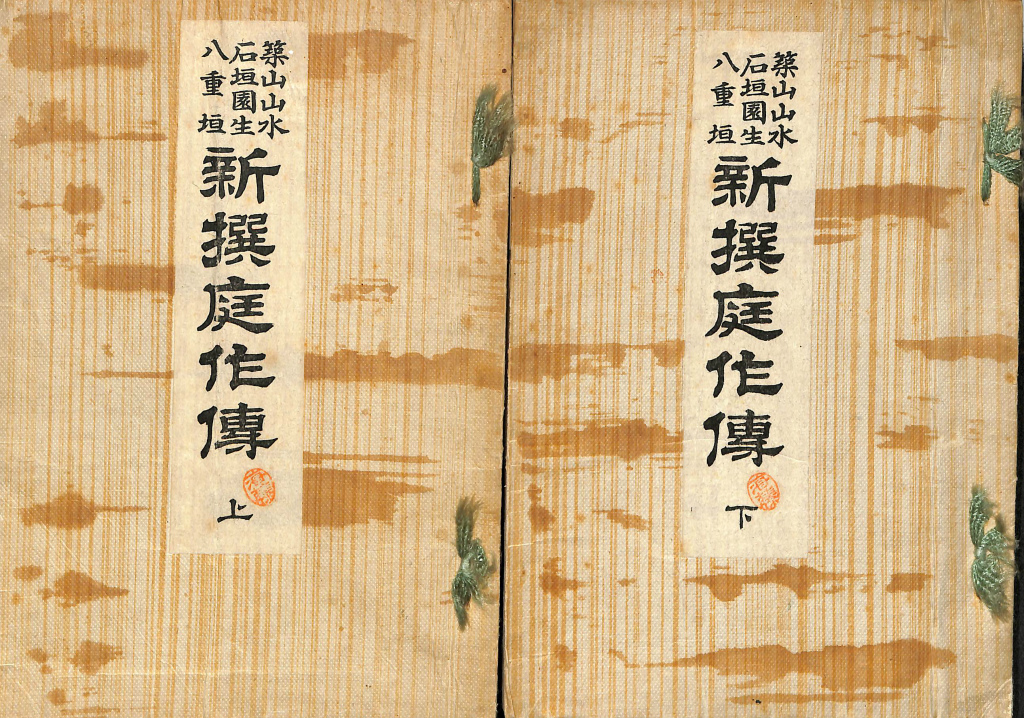 築山山水
石垣園生
八重垣
新撰庭作傳
上
築山山水
石垣園生
八重垣
新撰庭作傳
下